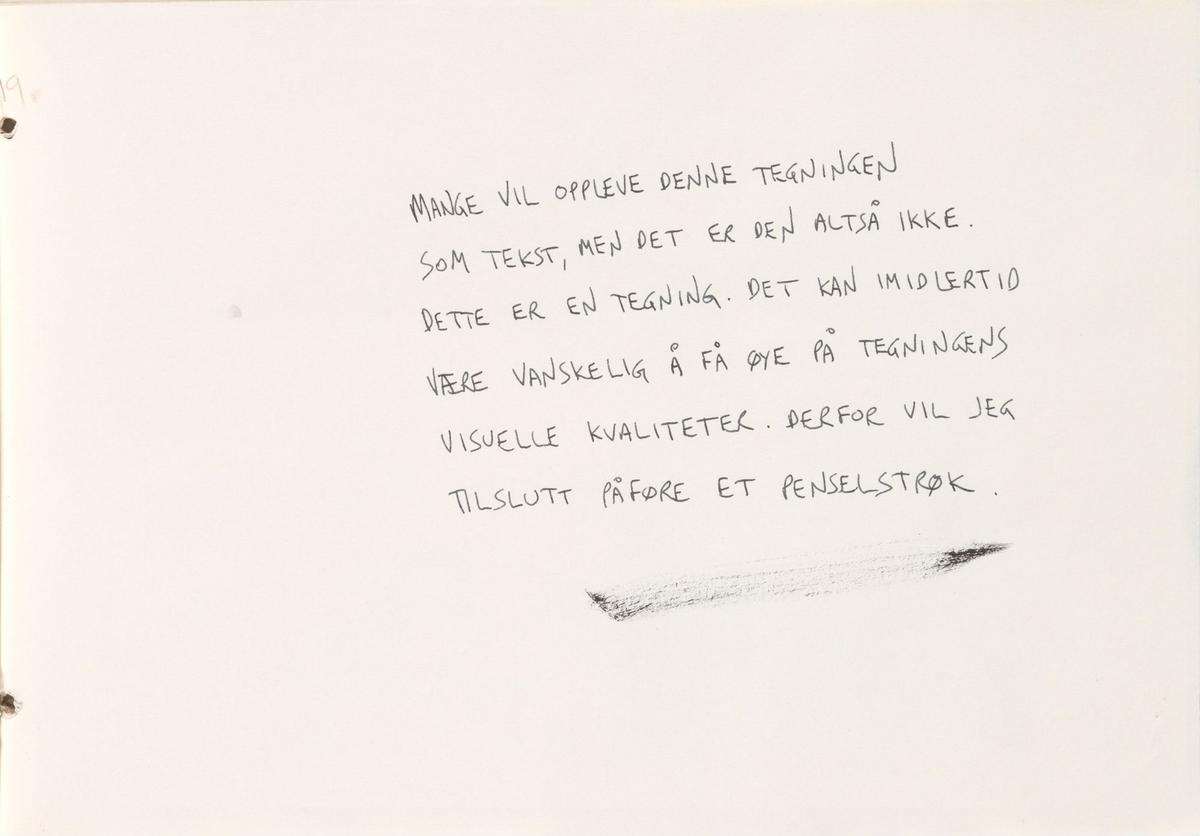 19.
MANGE VIL OPPLEVE DENNE TEGNINGEN
SOM TEKST, MEN DET ER DEN ALTSÅ IKKE.
DETTE ER EN TEGNING. DET KAN IMIDLERTID
VÆRE VANSKELIG Å FÅ ØYE PÅ TEGNINGENS
VISUELLE KVALITETER. DERFOR VIL JEG
TILSLUTT PÅFØRE ET PENSELSTRØK.